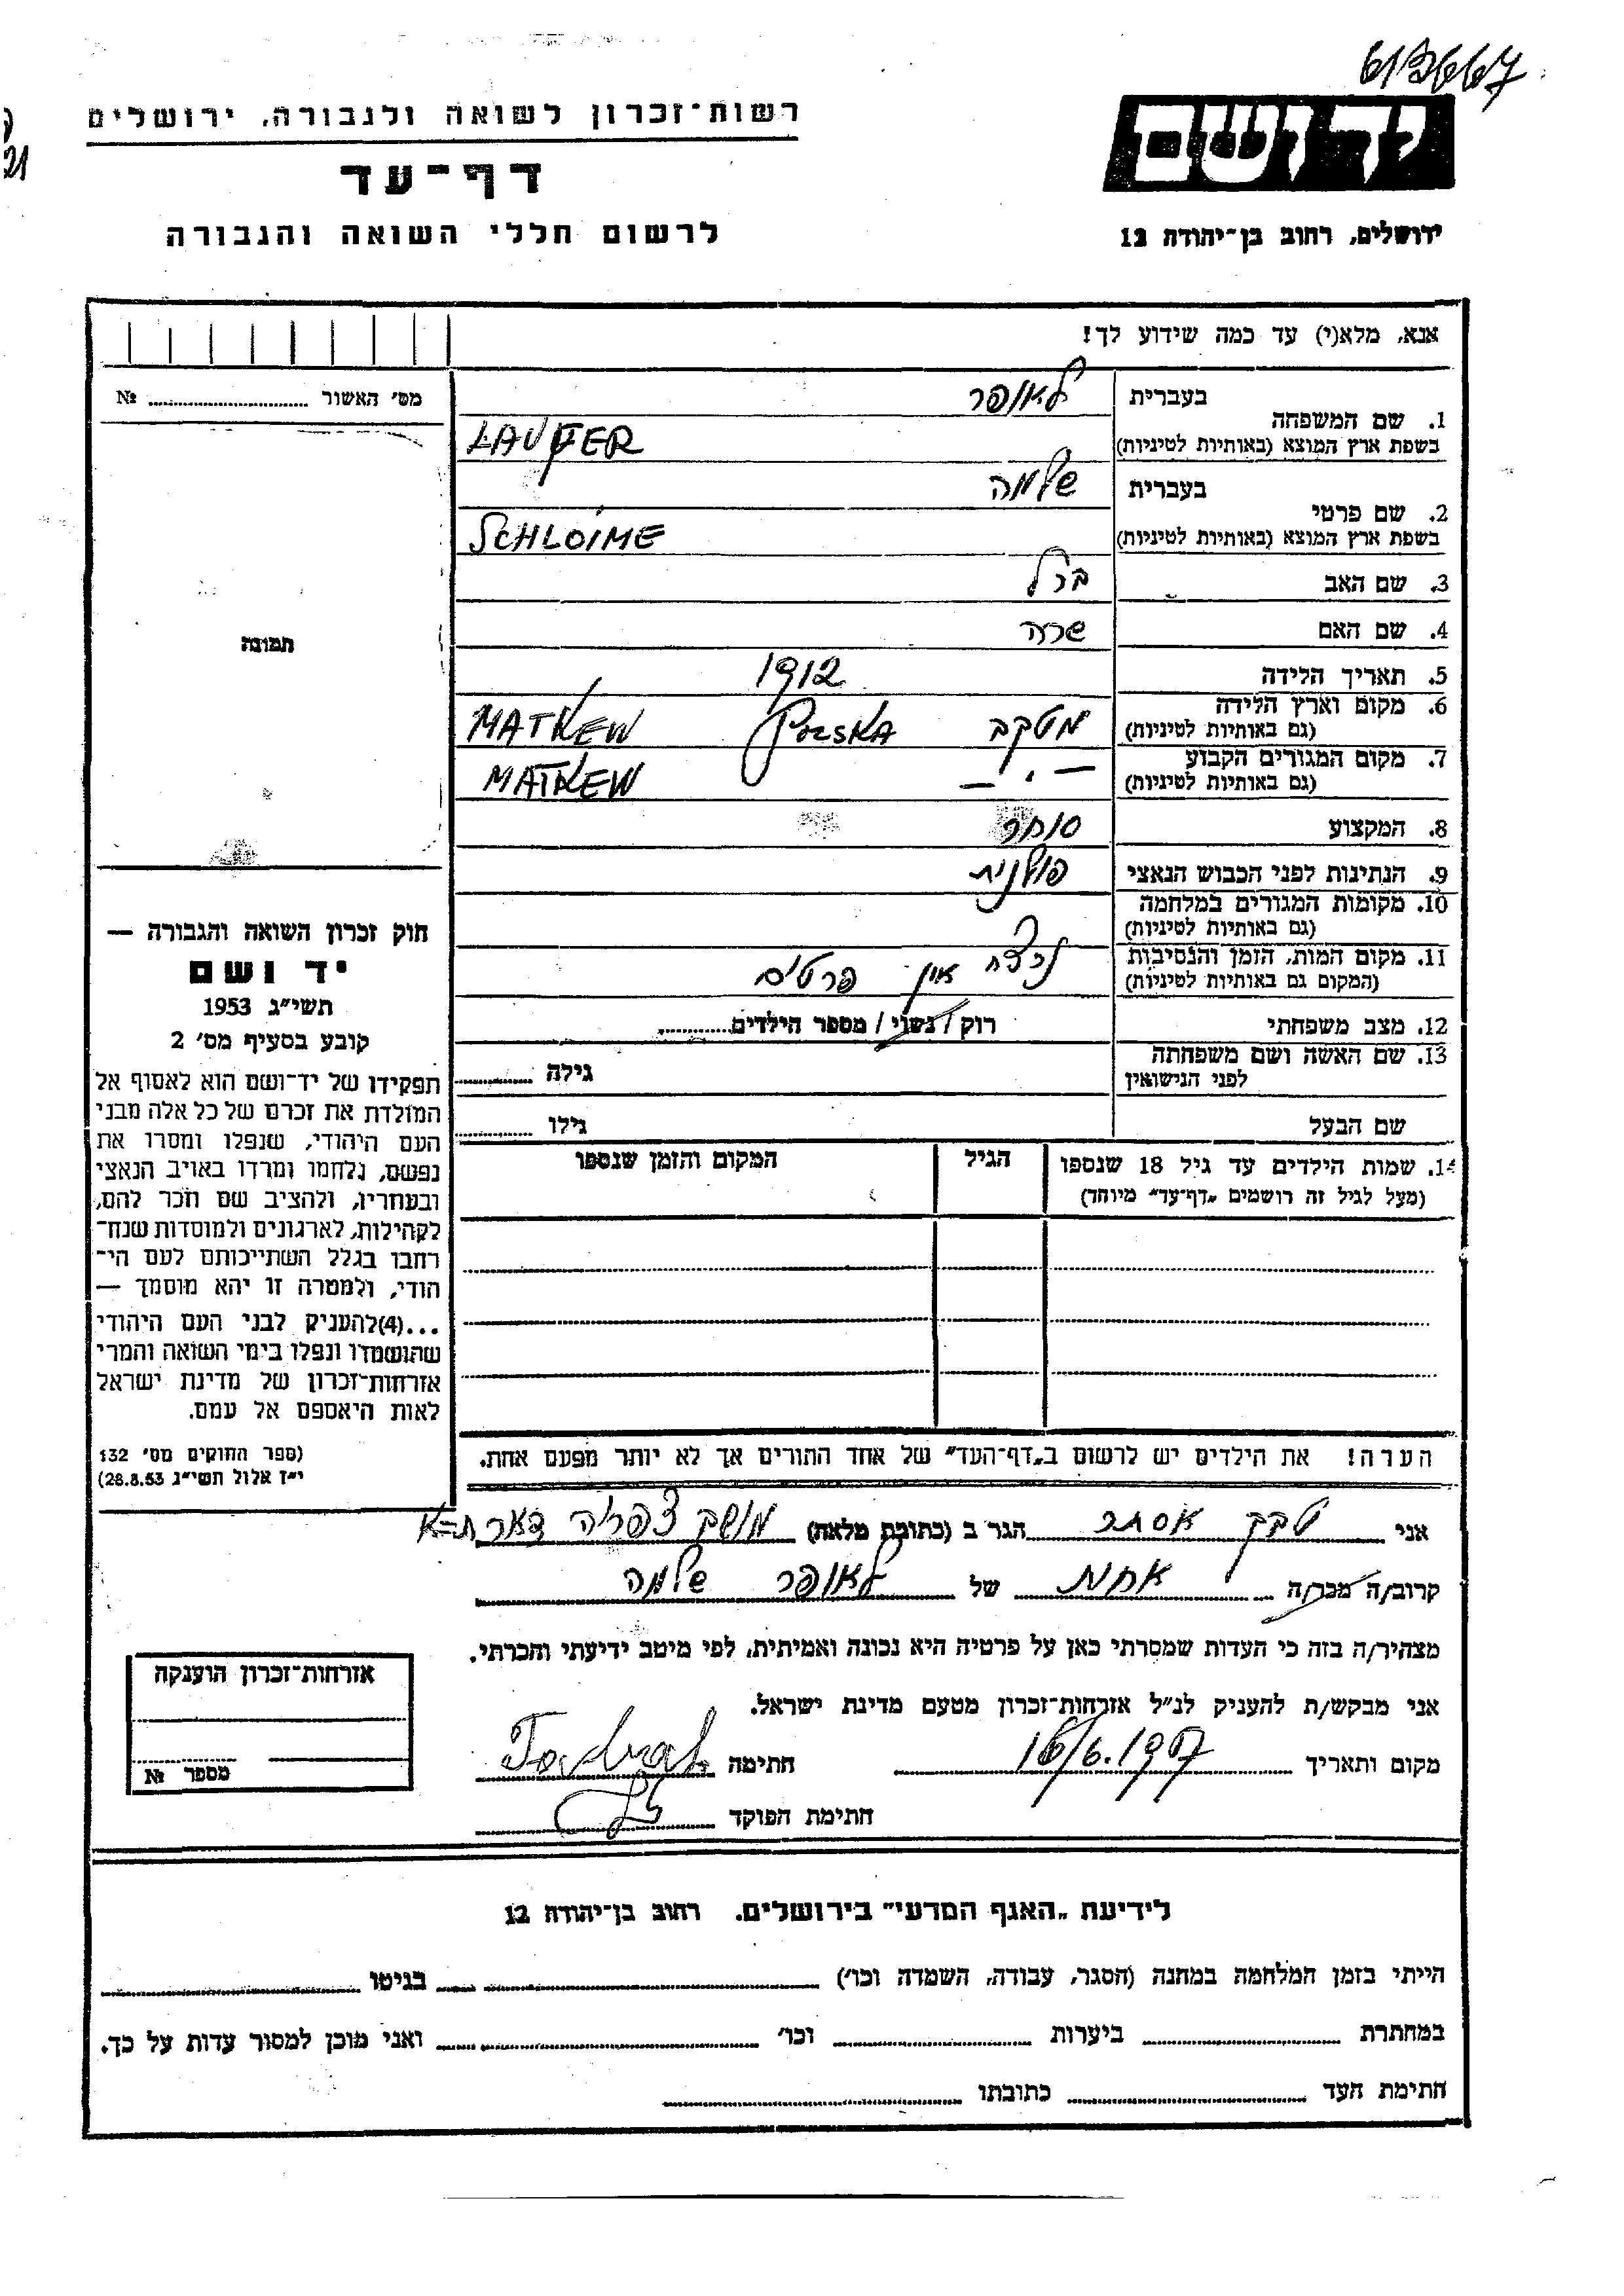 613667
רשות־זכרון לשואה ולגבורה, ירושלים
21
דף־עד
לרשום חללי השואה והגבורה
יד ושם
ירושלים, רחוב בן־יהודה 12
אנא, מלא(י) עד כמה שידוע לך!
מס׳ האשור ........ №
תמונה
1. שם המשפחה
בעברית לאופר
בשפת ארץ המוצא (באותיות לטיניות) LAUFER
2. שם פרטי
בעברית שלמה
בשפת ארץ המוצא (באותיות לטיניות) SCHLOIME
3. שם האב ברל
4. שם האם שרה
5. תאריך הלידה 1912
6. מקום וארץ הלידה מטקב POLSKA MATKEW
(גם באותיות לטיניות)
7. מקום המגורים הקבוע — ״ — MATKEW
(גם באותיות לטיניות)
8. המקצוע סוחר
9. הנתינות לפני הכבוש הנאצי פולנית
10. מקומות המגורים במלחמה
(גם באותיות לטיניות)
11. מקום המות, הזמן והנסיבות נרצח אין פרטים
(המקום גם באותיות לטיניות)
12. מצב משפחתי רוק / נשוי / מספר הילדים........
13. שם האשה ושם משפחתה
לפני הנישואין גילה ........
שם הבעל גילו ........
14. שמות הילדים עד גיל 18 שנספו הגיל המקום והזמן שנספו
(מעל לגיל זה רושמים „דף־עד״ מיוחד)
חוק זכרון השואה והגבורה —
יד ושם
תשי״ג 1953
קובע בסעיף מס׳ 2
תפקידו של יד־ושם הוא לאסוף אל
המולדת את זכרם של כל אלה מבני
העם היהודי, שנפלו ומסרו את
נפשם, נלחמו ומרדו באויב הנאצי
ובעוזריו, ולהציב שם וזכר להם,
לקהילות, לארגונים ולמוסדות שנח־
רבו בגלל השתייכותם לעם הי־
הודי, ולמטרה זו יהא מוסמך —
...(4)להעניק לבני העם היהודי
שהושמדו ונפלו בימי השואה והמרי
אזרחות־זכרון של מדינת ישראל
לאות היאספם אל עמם.
(ספר החוקים מס׳ 132
י״ז אלול תשי״ג 28.8.53)
הערה! את הילדים יש לרשום ב„דף־העד״ של אחד ההורים אך לא יותר מפעם אחת.
אני טבק אסתר הגר ב (כתובת מלאה) מושב צפריה ד.נ.
קרוב/ה מכר/ה אחות של לאופר שלמה
מצהיר/ה בזה כי העדות שמסרתי כאן על פרטיה היא נכונה ואמיתית, לפי מיטב ידיעתי והכרתי.
אני מבקש/ת להעניק לנ״ל אזרחות־זכרון מטעם מדינת ישראל.
מקום ותאריך 16/6.1957 חתימה
חתימת הפוקד
אזרחות־זכרון הוענקה
מספר №
לידיעת „האגף המדעי״ בירושלים. רחוב בן־יהודה 12
הייתי בזמן המלחמה במחנה (הסגר, עבודה, השמדה וכו׳) ........ בגיטו ........
במחתרת ........ ביערות ........ וכו׳ ........ ואני מוכן למסור עדות על כך.
חתימת העד ........ כתובתו ........